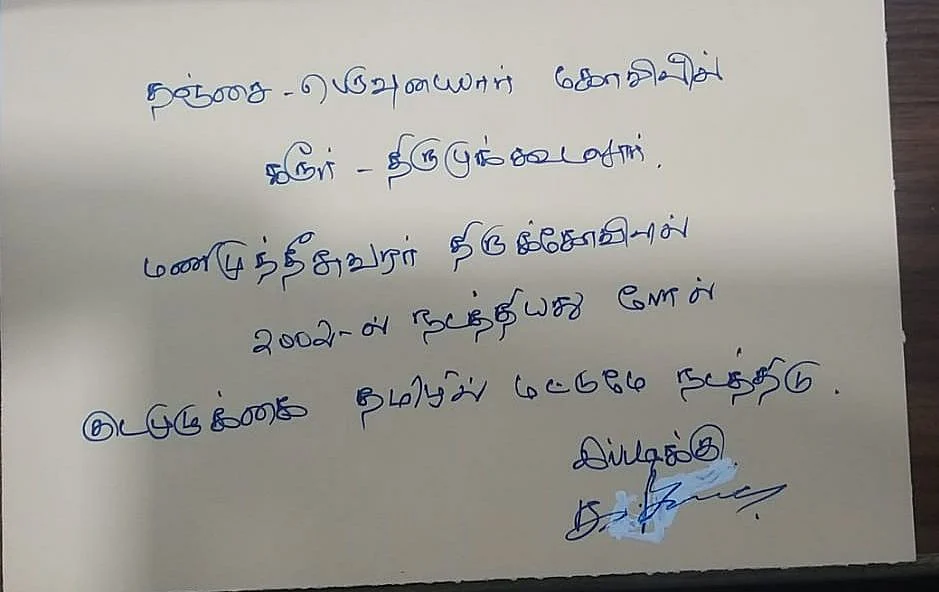 தஞ்சை - பெருவுடையார் கோவிலில்
கரூர் - திருமுக்கூடலூர்.
மணிமுத்தீசுவரர் திருக்கோவிலில்
2002-ல் நடத்தியது போல்
குடமுழுக்கை தமிழில் மட்டுமே நடத்திடு.
இப்படிக்கு